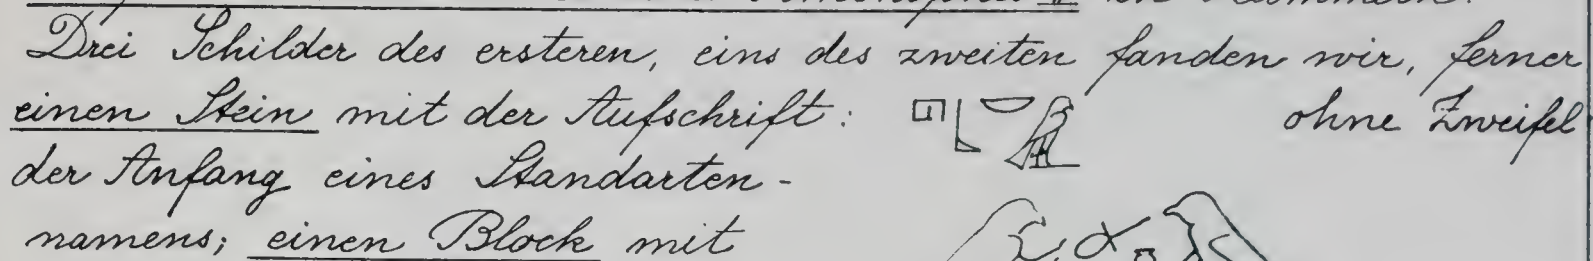 Drei Schilder des ersteren, eins des zweiten fanden wir, ferner
einen Stein mit der Aufschrift: ohne Zweifel
der Anfang eines Standarten-
namens; einen Block mit